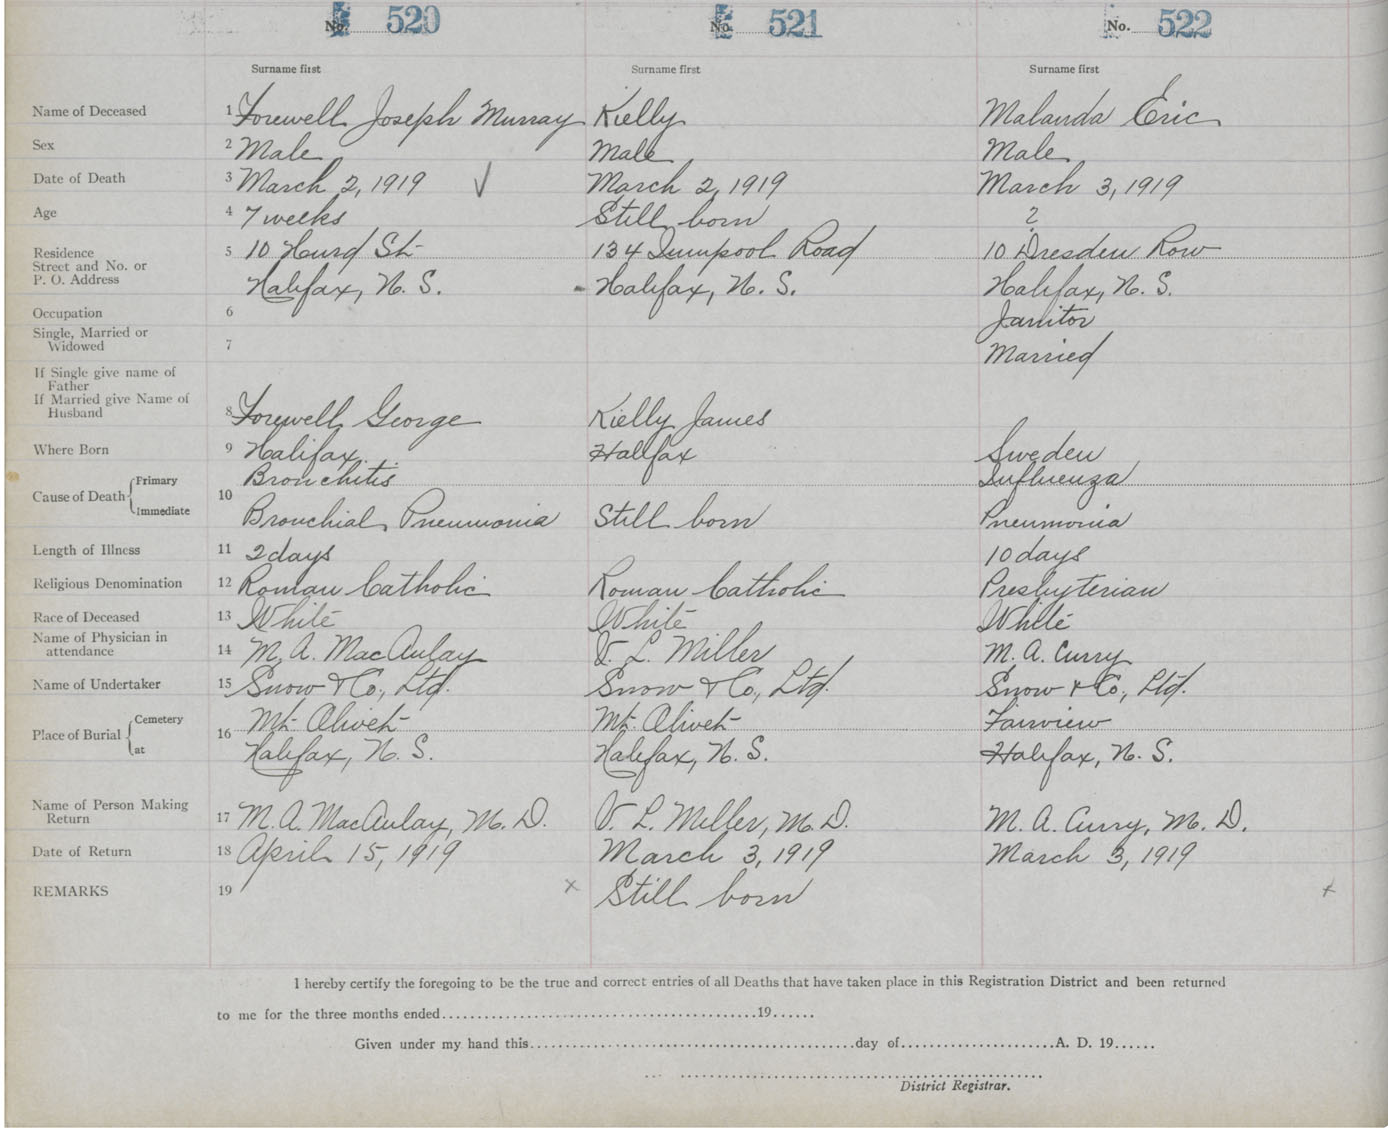 No. 520 No. 521 No. 522
Surname first Surname first Surname first
Name of Deceased 1 Forewell Joseph Murray Kielly Malanda Eric
Sex 2 Male Male Male
Date of Death 3 March 2, 1919 ✓ March 2, 1919 March 3, 1919
Age 4 7 weeks Still born ?
Residence 5 10 Hurd St 134 Road 10 Dresden Row
Street and No. or
P. O. Address Halifax, N. S. Halifax, N. S. Halifax, N. S.
Occupation 6 Janitor
Single, Married or
Widowed 7 Married
If Single give name of
Father
If Married give Name of
Husband 8 Forewell George Kielly James
Where Born 9 Halifax. Halifax Sweden
Cause of Death Primary Bronchitis Influenza
10
Immediate Bronchial Pneumonia Still born Pneumonia
Length of Illness 11 2 days 10 days
Religious Denomination 12 Roman Catholic Roman Catholic Presbyterian
Race of Deceased 13 White White White
Name of Physician in
attendance 14 M. A. MacAulay V. L. Miller M. A. Curry
Name of Undertaker 15 Snow & Co., Ltd. Snow & Co., Ltd. Snow & Co., Ltd.
Place of Burial Cemetery Mt. Olivet Mt. Olivet Fairview
16
at Halifax, N. S. Halifax, N. S. Halifax, N. S.
Name of Person Making
Return 17 M. A. MacAulay, M. D. V. L. Miller, M. D. M. A. Curry, M. D.
Date of Return 18 April 15, 1919 March 3, 1919 March 3, 1919
REMARKS 19 x Still born x
I hereby certify the foregoing to be the true and correct entries of all Deaths that have taken place in this Registration District and been returned
to me for the three months ended....................19......
Given under my hand this....................day of....................A. D. 19......
District Registrar.